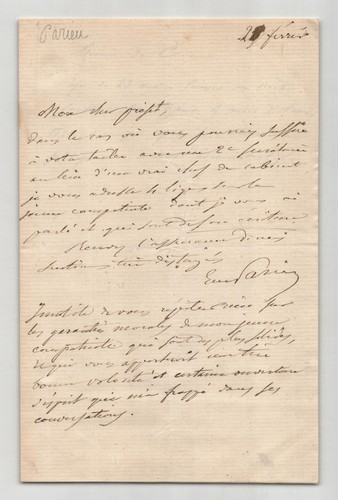 Parieu
25 février
Mon cher préfet,
dans le cas où vous pourriez suffire
à votre tâche avec un 2e secrétaire
au lieu d'un vrai chef de cabinet
je vous adresse 4 lignes sur le
jeune compatriote dont je vous ai
parlé et qui sont de son écriture
Recevez l'assurance de mes
sentiments très distingués
E. de Parieu
Inutile de vous répéter rien sur
les garanties morales de mon jeune
compatriote qui sont des plus solides,
et qui vous apporterait une très
bonne volonté et certaine ouverture
d'esprit qui m'a frappé dans ses
conversations.